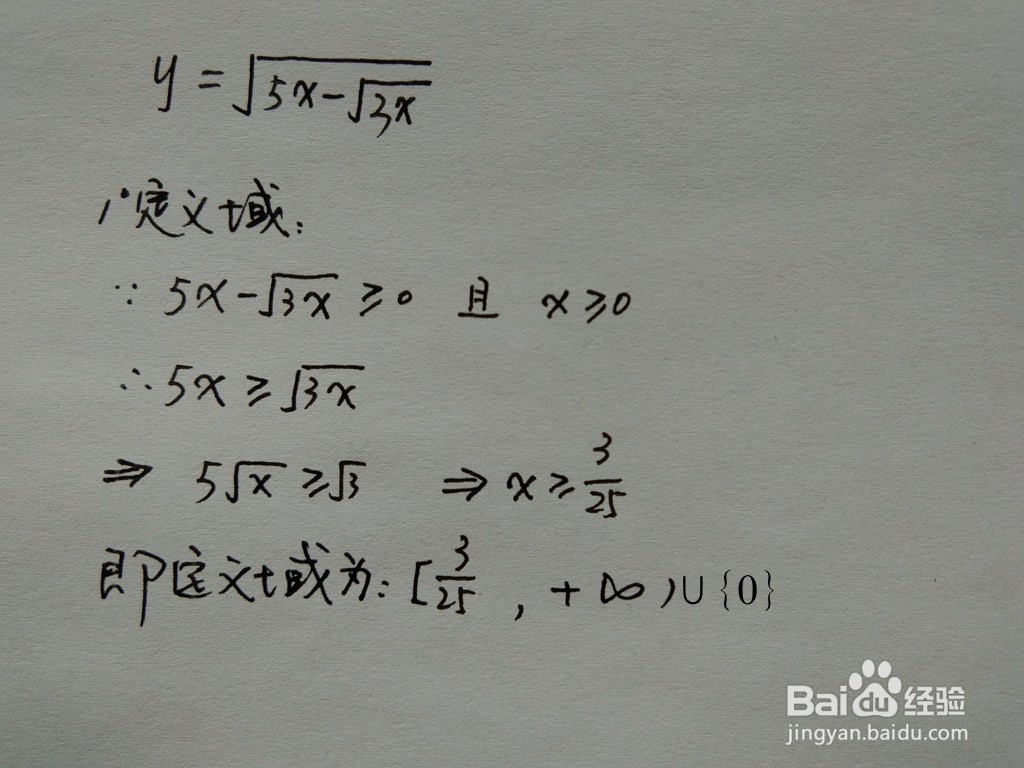 y=√(5x-√(3x))
1°定义域:
∵ 5x-√(3x)≥0 且 x≥0
∴ 5x≥√(3x)
⇒ 5√x≥√3 ⇒ x≥3/25
即定义域为:[3/25,+∞)∪{0}
Baidu经验
jingyan.baidu.com